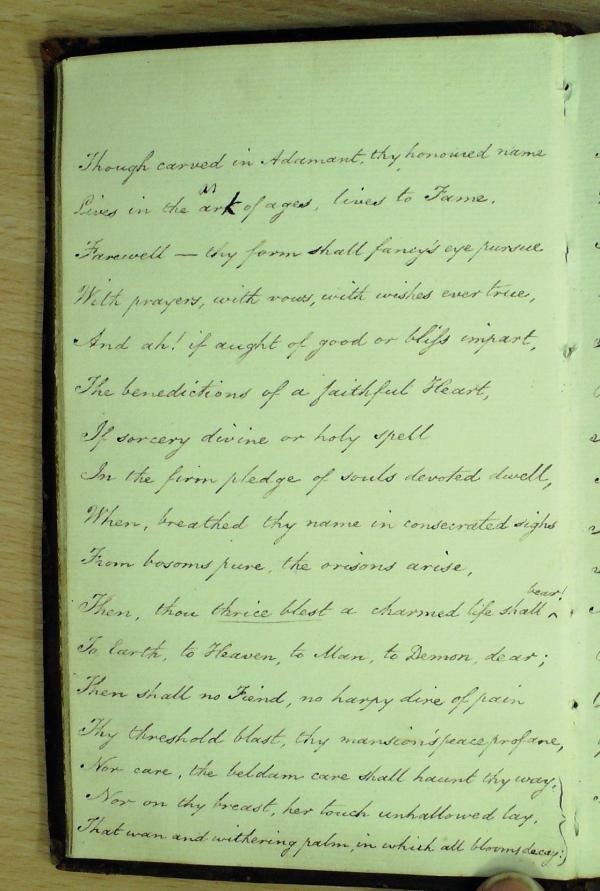 Though carved in Adamant, thy honoured name
Lives in the ark of ages, lives to Fame.
Farewell — thy form shall fancy's eye pursue
With prayers, with vows, with wishes ever true,
And ah! if aught of good or bliſs impart,
The benedictions of a faithful Heart,
If sorcery divine or holy spell
In the firm pledge of souls devoted dwell,
When, breathed thy name in consecrated sighs
From bosoms pure, the orisons arise,
Then, thou thrice blest a charmed life shall ^ bear!
To Earth, to Heaven, to Man, to Demon, dear;
Then shall no Fiend, no harpy dire of pain
Thy threshold blast, thy mansion's peace profane,
Nor care, the beldam care shall haunt thy way,
Nor on thy breast, her touch unhallowed lay,
That wan and withering palm, in which all blooms decay: